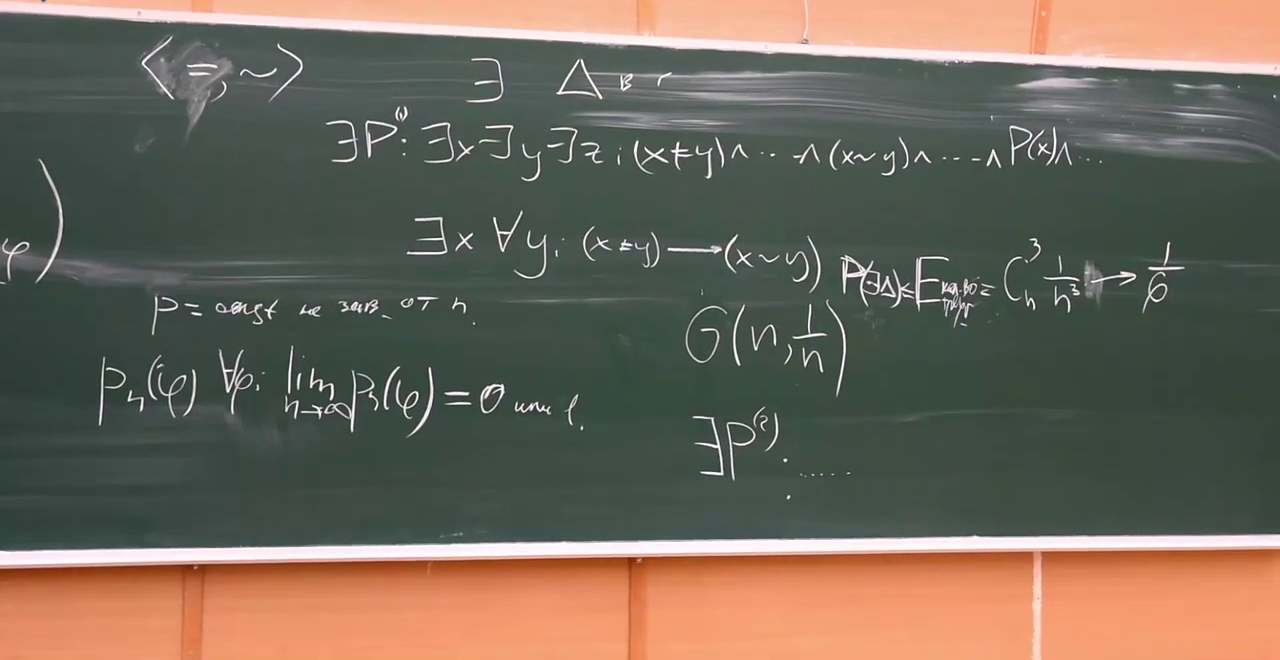 <=, ~>
∃ △ в г
∃P⁽¹⁾: ∃x∃y∃z: (x≠y)∧...∧(x~y)∧...∧P(x)∧...
φ)
∃x ∀y: (x≠y)→(x~y))
P(∃△)≤E кол-во = C_n^3 1/n^3 → 1/6
p = const не зав. от n.
G(n, 1/n)
p_n(φ) ∀φ: lim_{n→∞} p_n(φ) = 0 или 1.
∃P⁽²⁾: ......